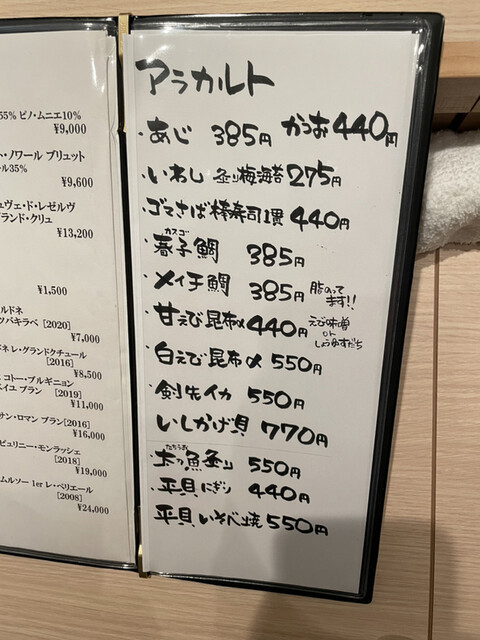 55% ピノ・ムニエ10%
¥9,000
ト・ノワール ブリュット
ール35%
¥9,600
ュヴェ・ド・レゼルヴ
グランド・クリュ
¥13,200
¥1,500
ルドネ
ツバキラベ [2020]
¥7,000
ドネ レ・グランドクチュール
[2016]
¥8,500
コトー・ブルギニヨン
ベイユ ブラン [2019]
¥11,000
サン・ロマン ブラン[2016]
¥16,000
ピュリニー・モンラッシェ
[2018]
¥19,000
ムルソー 1er レ・ペリエール
[2008]
¥24,000
アラカルト
・あじ 385円 かつお440円
・いわし 炙り梅海苔 275円
・ゴマさば棒寿司1貫 440円
カスゴ
・春子鯛 385円
・メイチ鯛 385円 脂のってます!!
・甘えび昆布〆440円 えび味噌 or しょうゆすだち
・白えび昆布〆 550円
・剣先イカ 550円
いしかげ貝 770円
たちうお
・太刀魚炙り 550円
・平貝にぎり 440円
・平貝いそべ焼 550円